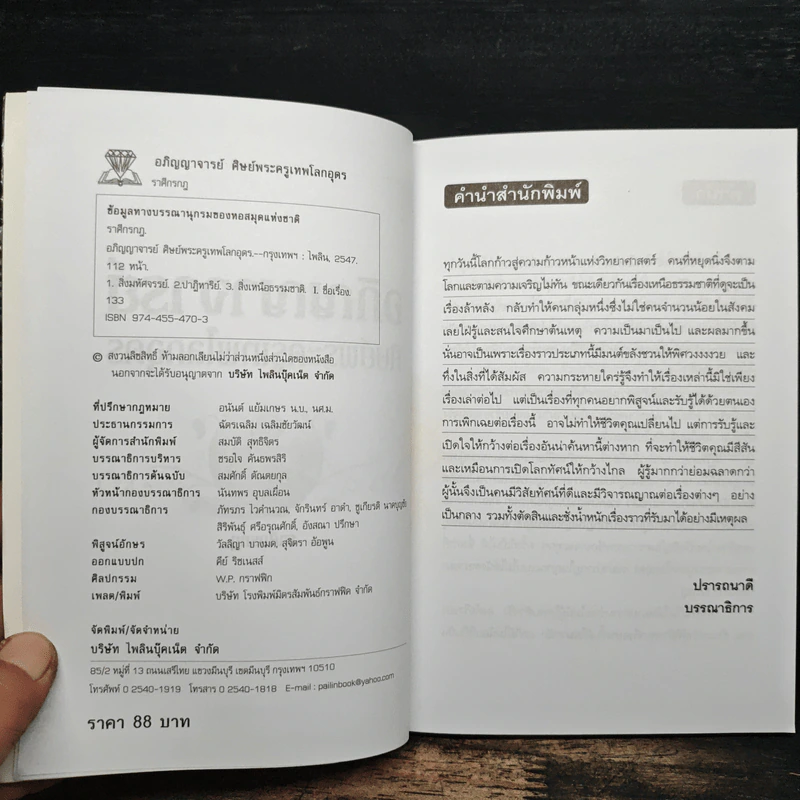 อภิญญาจารย์ ศิษย์พระครูเทพโลกอุดร
ราศีกรกฎ
ข้อมูลทางบรรณานุกรมของหอสมุดแห่งชาติ
ราศีกรกฎ.
อภิญญาจารย์ ศิษย์พระครูเทพโลกอุดร.--กรุงเทพฯ : ไพลิน, 2547.
112 หน้า.
1. สิ่งมหัศจรรย์. 2.ปาฏิหาริย์. 3. สิ่งเหนือธรรมชาติ. I. ชื่อเรื่อง.
133
ISBN 974-455-470-3
© สงวนลิขสิทธิ์ ห้ามลอกเลียนไม่ว่าส่วนหนึ่งส่วนใดของหนังสือ
นอกจากจะได้รับอนุญาตจาก บริษัท ไพลินบุ๊คเน็ต จำกัด
ที่ปรึกษากฎหมาย อนันต์ แย้มเกษร น.บ., นศ.ม.
ประธานกรรมการ ฉัตรเฉลิม เฉลิมชัยวัฒน์
ผู้จัดการสำนักพิมพ์ สมบัติ สุทธิจิตร
บรรณาธิการบริหาร ชรอใจ คันธพรสิริ
บรรณาธิการต้นฉบับ สมศักดิ์ ตัณตยกุล
หัวหน้ากองบรรณาธิการ นันทพร อุบลเผื่อน
กองบรรณาธิการ ภัทรภร ไวคำนวณ, จักรินทร์ อาดำ, ชูเกียรติ
สิริพันธุ์ ศรีอรุณศักดิ์, อังสณา ปรึกษา
พิสูจน์อักษร วัลลิญา บางมด, สุจิตรา อ้อพูน
ออกแบบปก คีย์ รีชเนสส์
ศิลปกรรม W.P. กราฟฟิก
เพลต/พิมพ์ บริษัท โรงพิมพ์มิตรสัมพันธ์กราฟฟิค จำกัด
จัดพิมพ์/จัดจำหน่าย
บริษัท ไพลินบุ๊คเน็ต จำกัด
85/2 หมู่ที่ 13 ถนนเสรีไทย แขวงมีนบุรี เขตมีนบุรี กรุงเทพฯ 10510
โทรศัพท์ 0 2540-1919 โทรสาร 0 2540-1818 E-mail : pailinbook@yahoo.com
ราคา 88 บาท
คำนำสำนักพิมพ์
ทุกวันนี้โลกก้าวสู่ความก้าวหน้าแห่งวิทยาศาสตร์ คนที่หยุดนิ่งจึงตาม
โลกและตามความเจริญไม่ทัน ขณะเดียวกันเรื่องเหนือธรรมชาติที่ดูจะเป็น
เรื่องล้าหลัง กลับทำให้คนกลุ่มหนึ่งซึ่งไม่ใช่คนจำนวนน้อยในสังคม
เลยใฝ่รู้และสนใจศึกษาต้นเหตุ ความเป็นมาเป็นไป และผลมากขึ้น
นั่นอาจเป็นเพราะเรื่องราวประเภทนี้มีมนต์ขลังชวนให้พิศวงงงงวย และ
ทึ่งในสิ่งที่ได้สัมผัส ความกระหายใคร่รู้จึงทำให้เรื่องเหล่านี้มิใช่เพียง
เรื่องเล่าต่อไป แต่เป็นเรื่องที่ทุกคนอยากพิสูจน์และรับรู้ได้ด้วยตนเอง
การเพิกเฉยต่อเรื่องนี้ อาจไม่ทำให้ชีวิตคุณเปลี่ยนไป แต่การรับรู้และ
เปิดใจให้กว้างต่อเรื่องอันน่าค้นหานี้ต่างหาก ที่จะทำให้ชีวิตคุณมีสีสัน
และเหมือนการเปิดโลกทัศน์ให้กว้างไกล ผู้รู้มากกว่าย่อมฉลาดกว่า
ผู้นั้นจึงเป็นคนมีวิสัยทัศน์ที่ดีและมีวิจารณญาณต่อเรื่องต่างๆ อย่าง
เป็นกลาง รวมทั้งตัดสินและชั่งน้ำหนักเรื่องราวที่รับมาได้อย่างมีเหตุผล
ปรารถนาดี
บรรณาธิการ